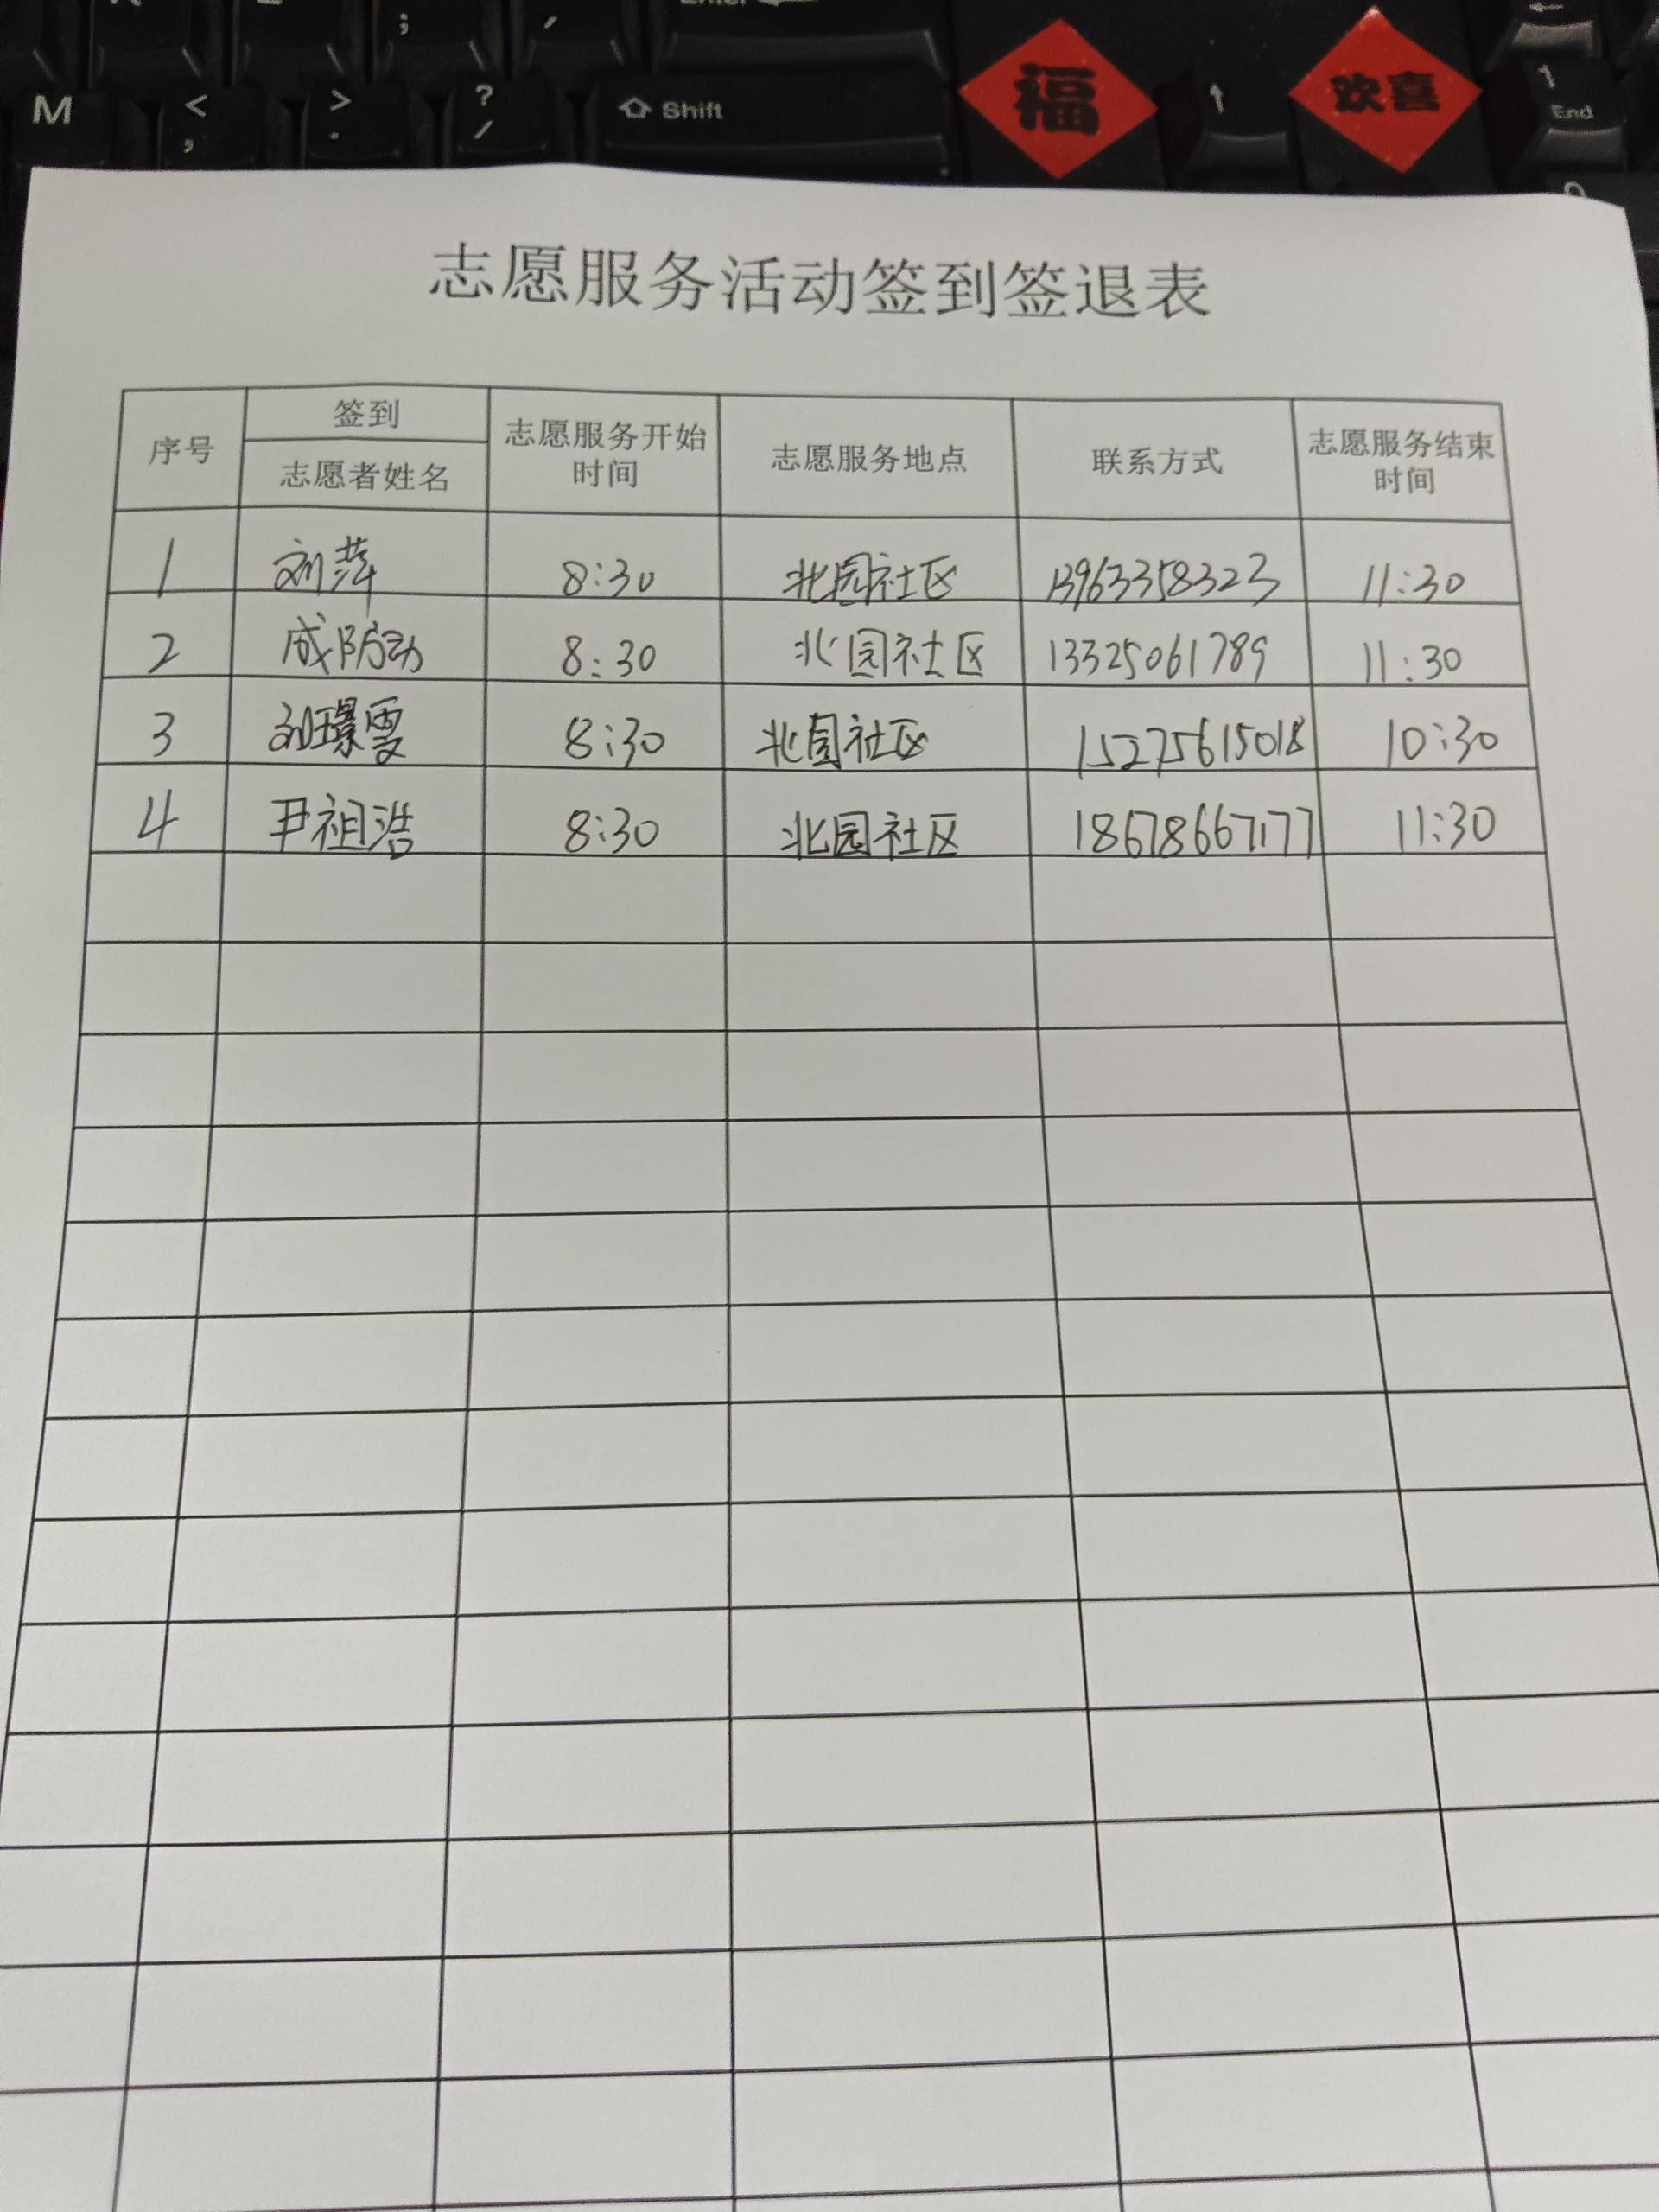 Enter
;
M
<
,
>
.
?
/
Shift
福
↑
欢喜
1
End
志愿服务活动签到签退表
序号 签到 志愿者姓名 志愿服务开始时间 志愿服务地点 联系方式 志愿服务结束时间
1 刘萍 8:30 北园社区 13963358323 11:30
2 成防动 8:30 北园社区 13325061789 11:30
3 刘璟雯 8:30 北园社区 15275615018 10:30
4 尹祖浩 8:30 北园社区 18678667177 11:30